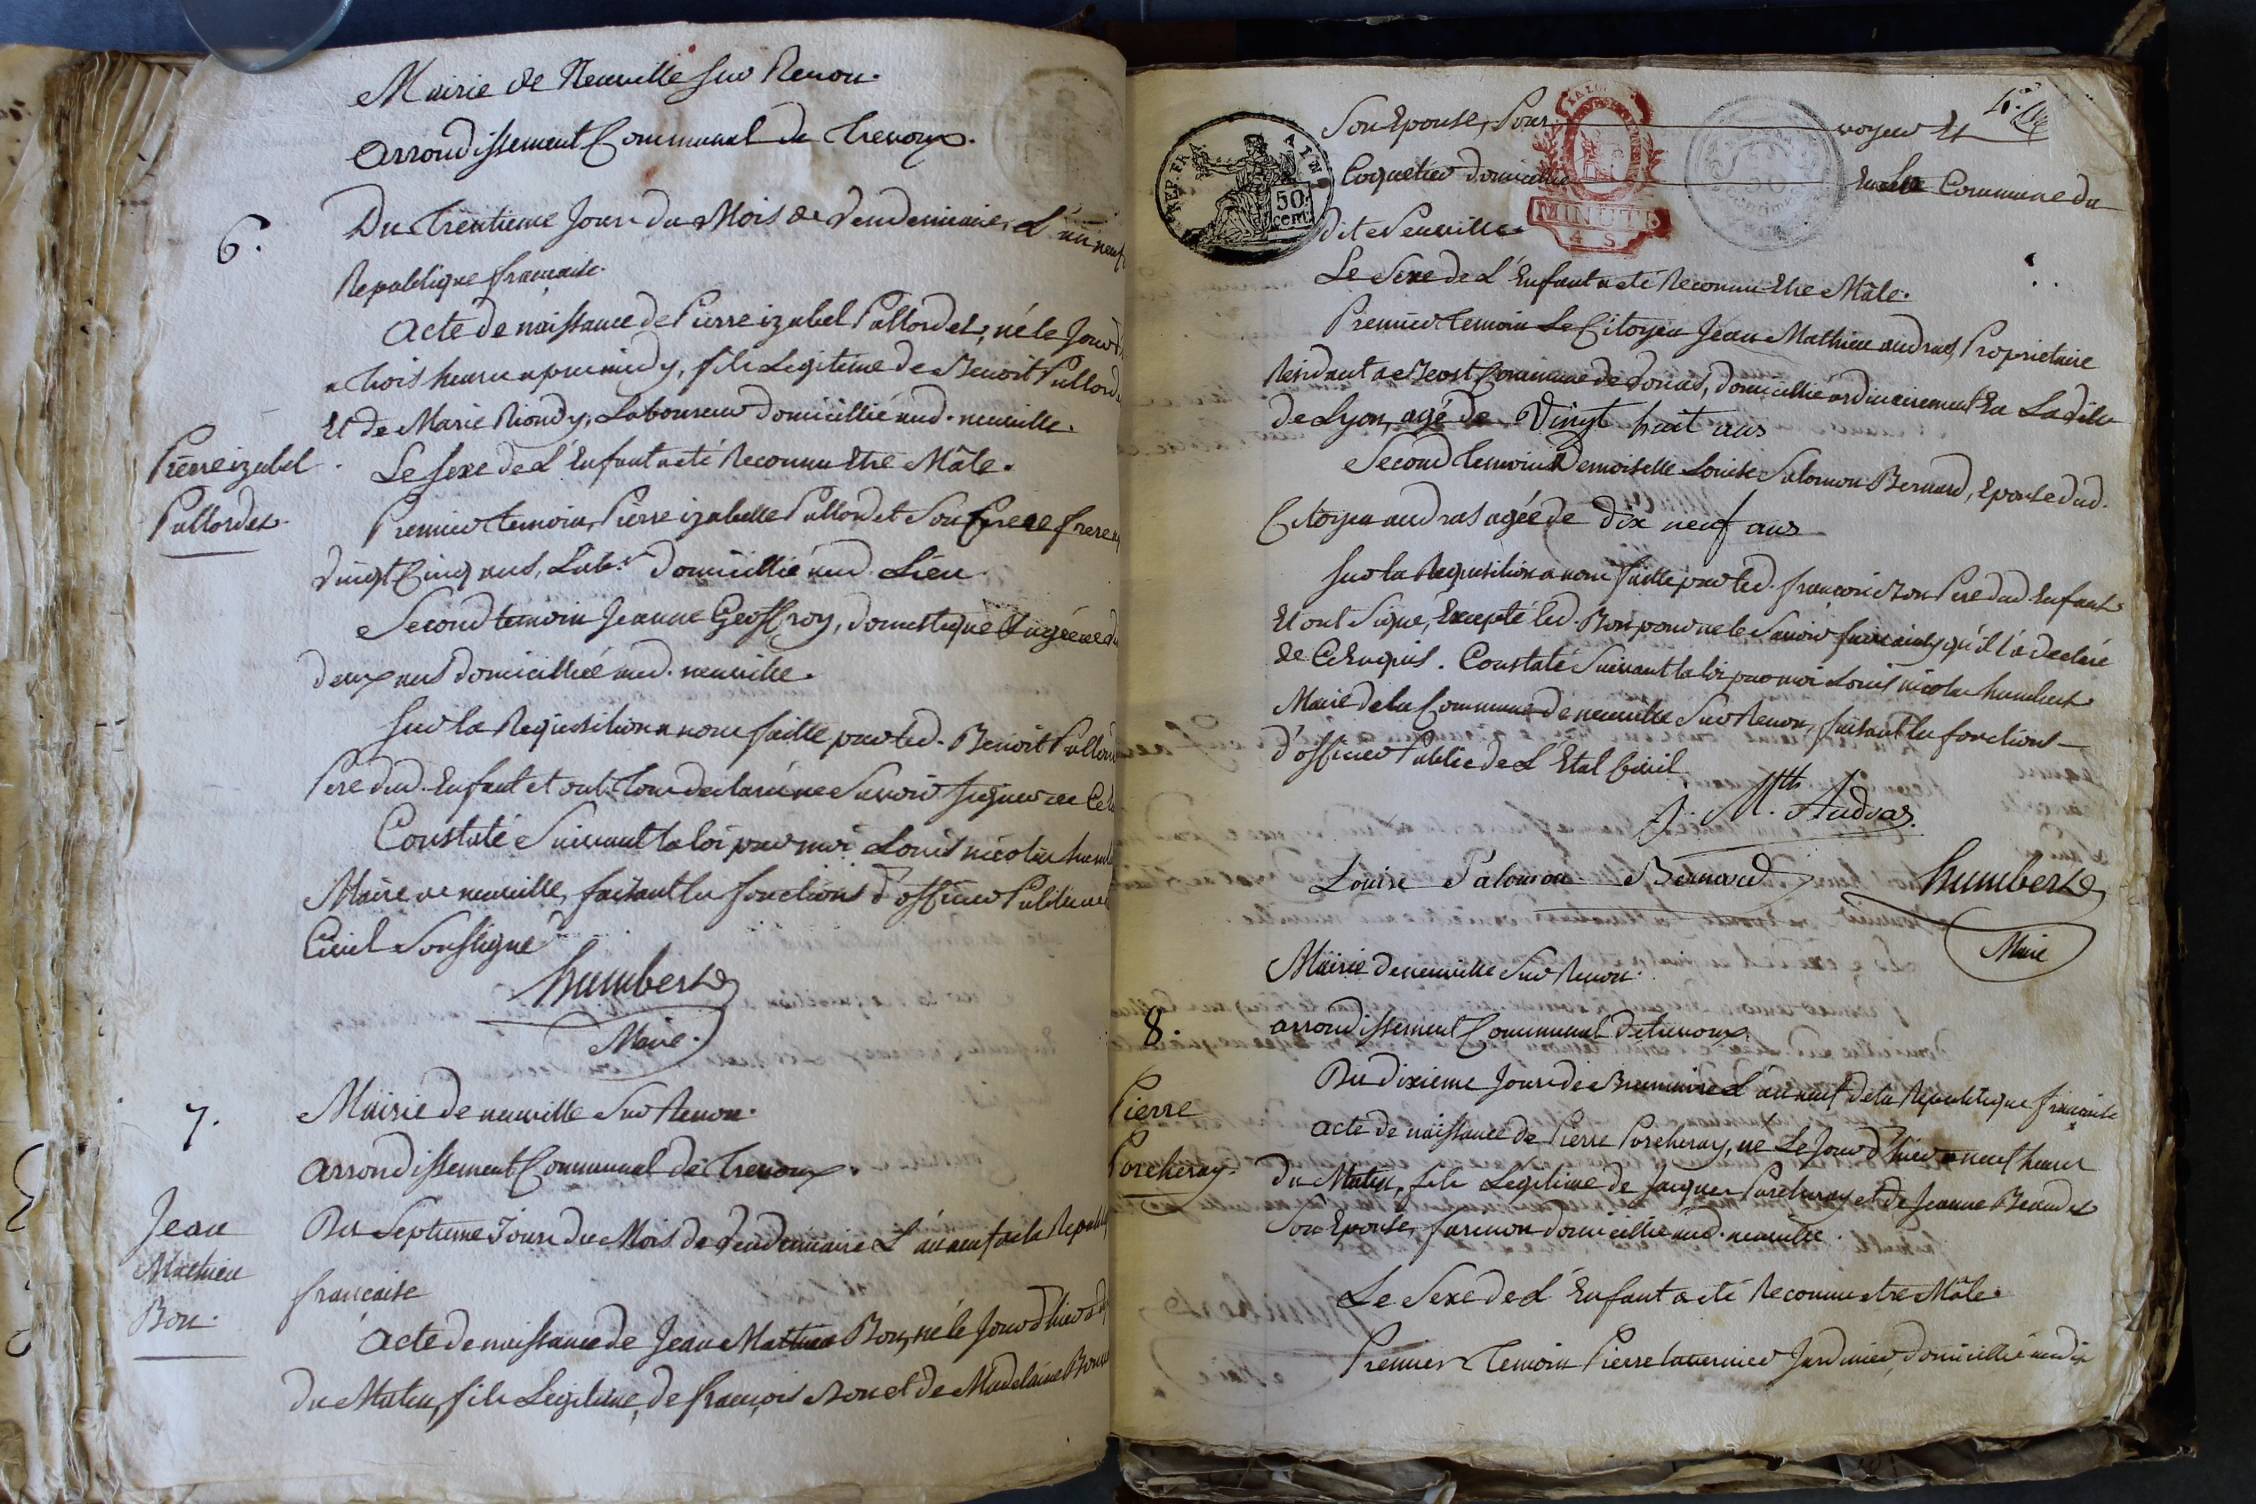 Mairie de Neuville sur Renon.
Arrondissement Communal de Trevoux.
6.
Du Trentieme Jour du Mois de Vendemiaire, L'an neuf
Republique francaise.
Acte de naissance de Pierre izabel Pallordet, né le Jour d'
a trois heure apres midy, fils Legitime de Benoit Pallord
Et de Marie Riondy, Laboureur domicillié aud. neuville.
Pierre izabel
Pallordet.
Le sexe de L'Enfant a eté Reconnu Etre Mâle.
Premier temoin, Pierre izabelle Pallordet Son frere
vingt Cinq ans, Lab.r domicillié aud. Lieu
Second temoin Jeanne Geoffroy, domestique agée de
deux ans domicilliée aud. neuville.
Sur la Requisition a nous faitte par led. Benoit Pallord
Pere dud. Enfant et ont Tous declaré ne Savoir signer de Ce
Constaté Suivant la loi par moi Louis nicolas humb
Maire de neuville, faisant les fonctions d'officier Public de
Civil Soussigné
humbert
Maire.
7.
Mairie de neuville Sur Renon.
Arrondissement Communal de Trevoux.
Jean
Mathieu
Bon.
Du Septieme Jour du Mois de Vendemiaire L'an neuf de la Republ
francaise
Acte de naissance de Jean Mathieu Bon, né le Jour d'hier a
du Matin, fils Legitime, de françois Bon et de Madelaine
4.e
Son Epouse, Pour voyeur Et
Coquetier domicillié En la Commune du
dit Neuville.
REP. FRA. AIN
50. cent.
MINUTE
4 S
Le Sexe de L'Enfant a eté Reconnu Etre Mâle.
Premier Temoin Le Citoyen Jean Mathieu audras, Proprietaire
Residant a Beost Commune de vonas, domicillié ordinairement En La ville
de Lyon, agé de Vingt huit ans
Second Temoin Demoiselle Louise Salomon Bernard, Epouse dud.
Citoyen audras agée de dix neuf ans
Sur la Requisition a nous faitte par led. francois Bon Pere dud Enfant
Et ont Signé, Excepté led. Bon pour ne le Savoir faire ainsi qu'il l'a declaré
de Ce Enquis. Constaté Suivant la loi par moi Louis nicolas humbert
Maire de la Commune de neuville Sur Renon, faisant les fonctions
d'officier Public de L'Etat Civil
J. Mth. Audras.
Louise Salomon Bernard
humbert
Maire
Mairie de neuville Sur Renon.
8.
arrondissement Communal de trevoux.
Du dixieme Jour de Brumaire L'an neuf de la Republique francaise
Pierre
Porcheray.
Acte de naissance de Pierre Porcheray, né Le Jour d'hier a neuf heures
du Matin, fils Legitime de Jacques Porcheray et de Jeanne Beaudet
Son Epouse, farinon domicillié aud. neuville.
Le Sexe de L'Enfant a eté Reconnu etre Mâle.
Premier Temoin Pierre tavernier Jardinier, domicillié audit